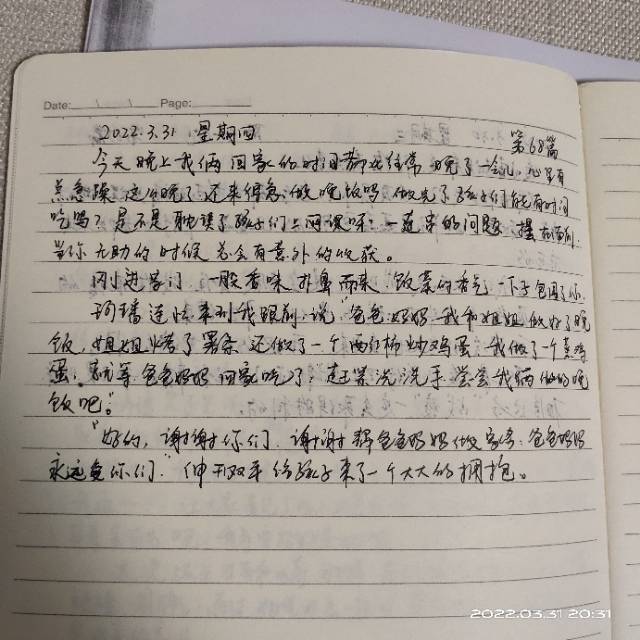 Date: Page:
2022.3.31 星期四
第68篇
今天晚上我俩回家的时间都比往常晚了一会儿,心里有
点急躁 这么晚了还来得急做晚饭吗 做完了孩子们能有时间
吃吗?是不是耽误了孩子们上网课呀:一连串的问题 摆在面前.
当你无助的时候总会有意外的收获。
刚进家门 一股香味扑鼻而来 饭菜的香气一下子包围了你.
连忙来到我跟前 说"爸爸 妈妈 我和姐姐做好了晚
饭,姐姐烤了薯条 还做了一个西红柿炒鸡蛋 我做了一个煮鸡
蛋.就等爸爸妈妈回家吃了,赶紧洗洗手 尝尝我俩做的晚
饭吧"
"好的,谢谢你们 谢谢帮爸爸妈妈做家务.爸爸妈妈
永远爱你们" 伸开双手给孩子来了一个大大的拥抱。
2022.03.31 20:31